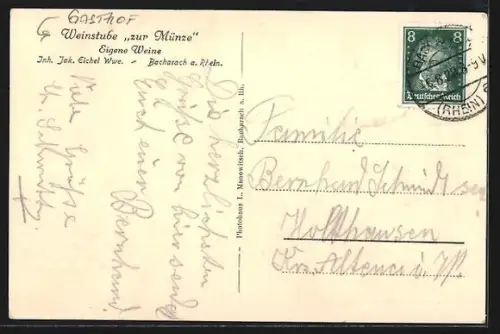 GASTHOF
Weinstube „zur Münze"
Eigene Weine
Inh. Jak. Eichel Wwe. - Bacharach a. Rhein.
Die herzlichsten
Grüße von hier sendet
Euch euer
Bernhard.
Viele Grüße
Photohaus L. Manewitsch, Bacharach a. Rh.
8 8
Deutsches Reich
(RHEIN)
Familie
Bernhard Schmidt sen
Holthausen
Krs. Altena i. W.